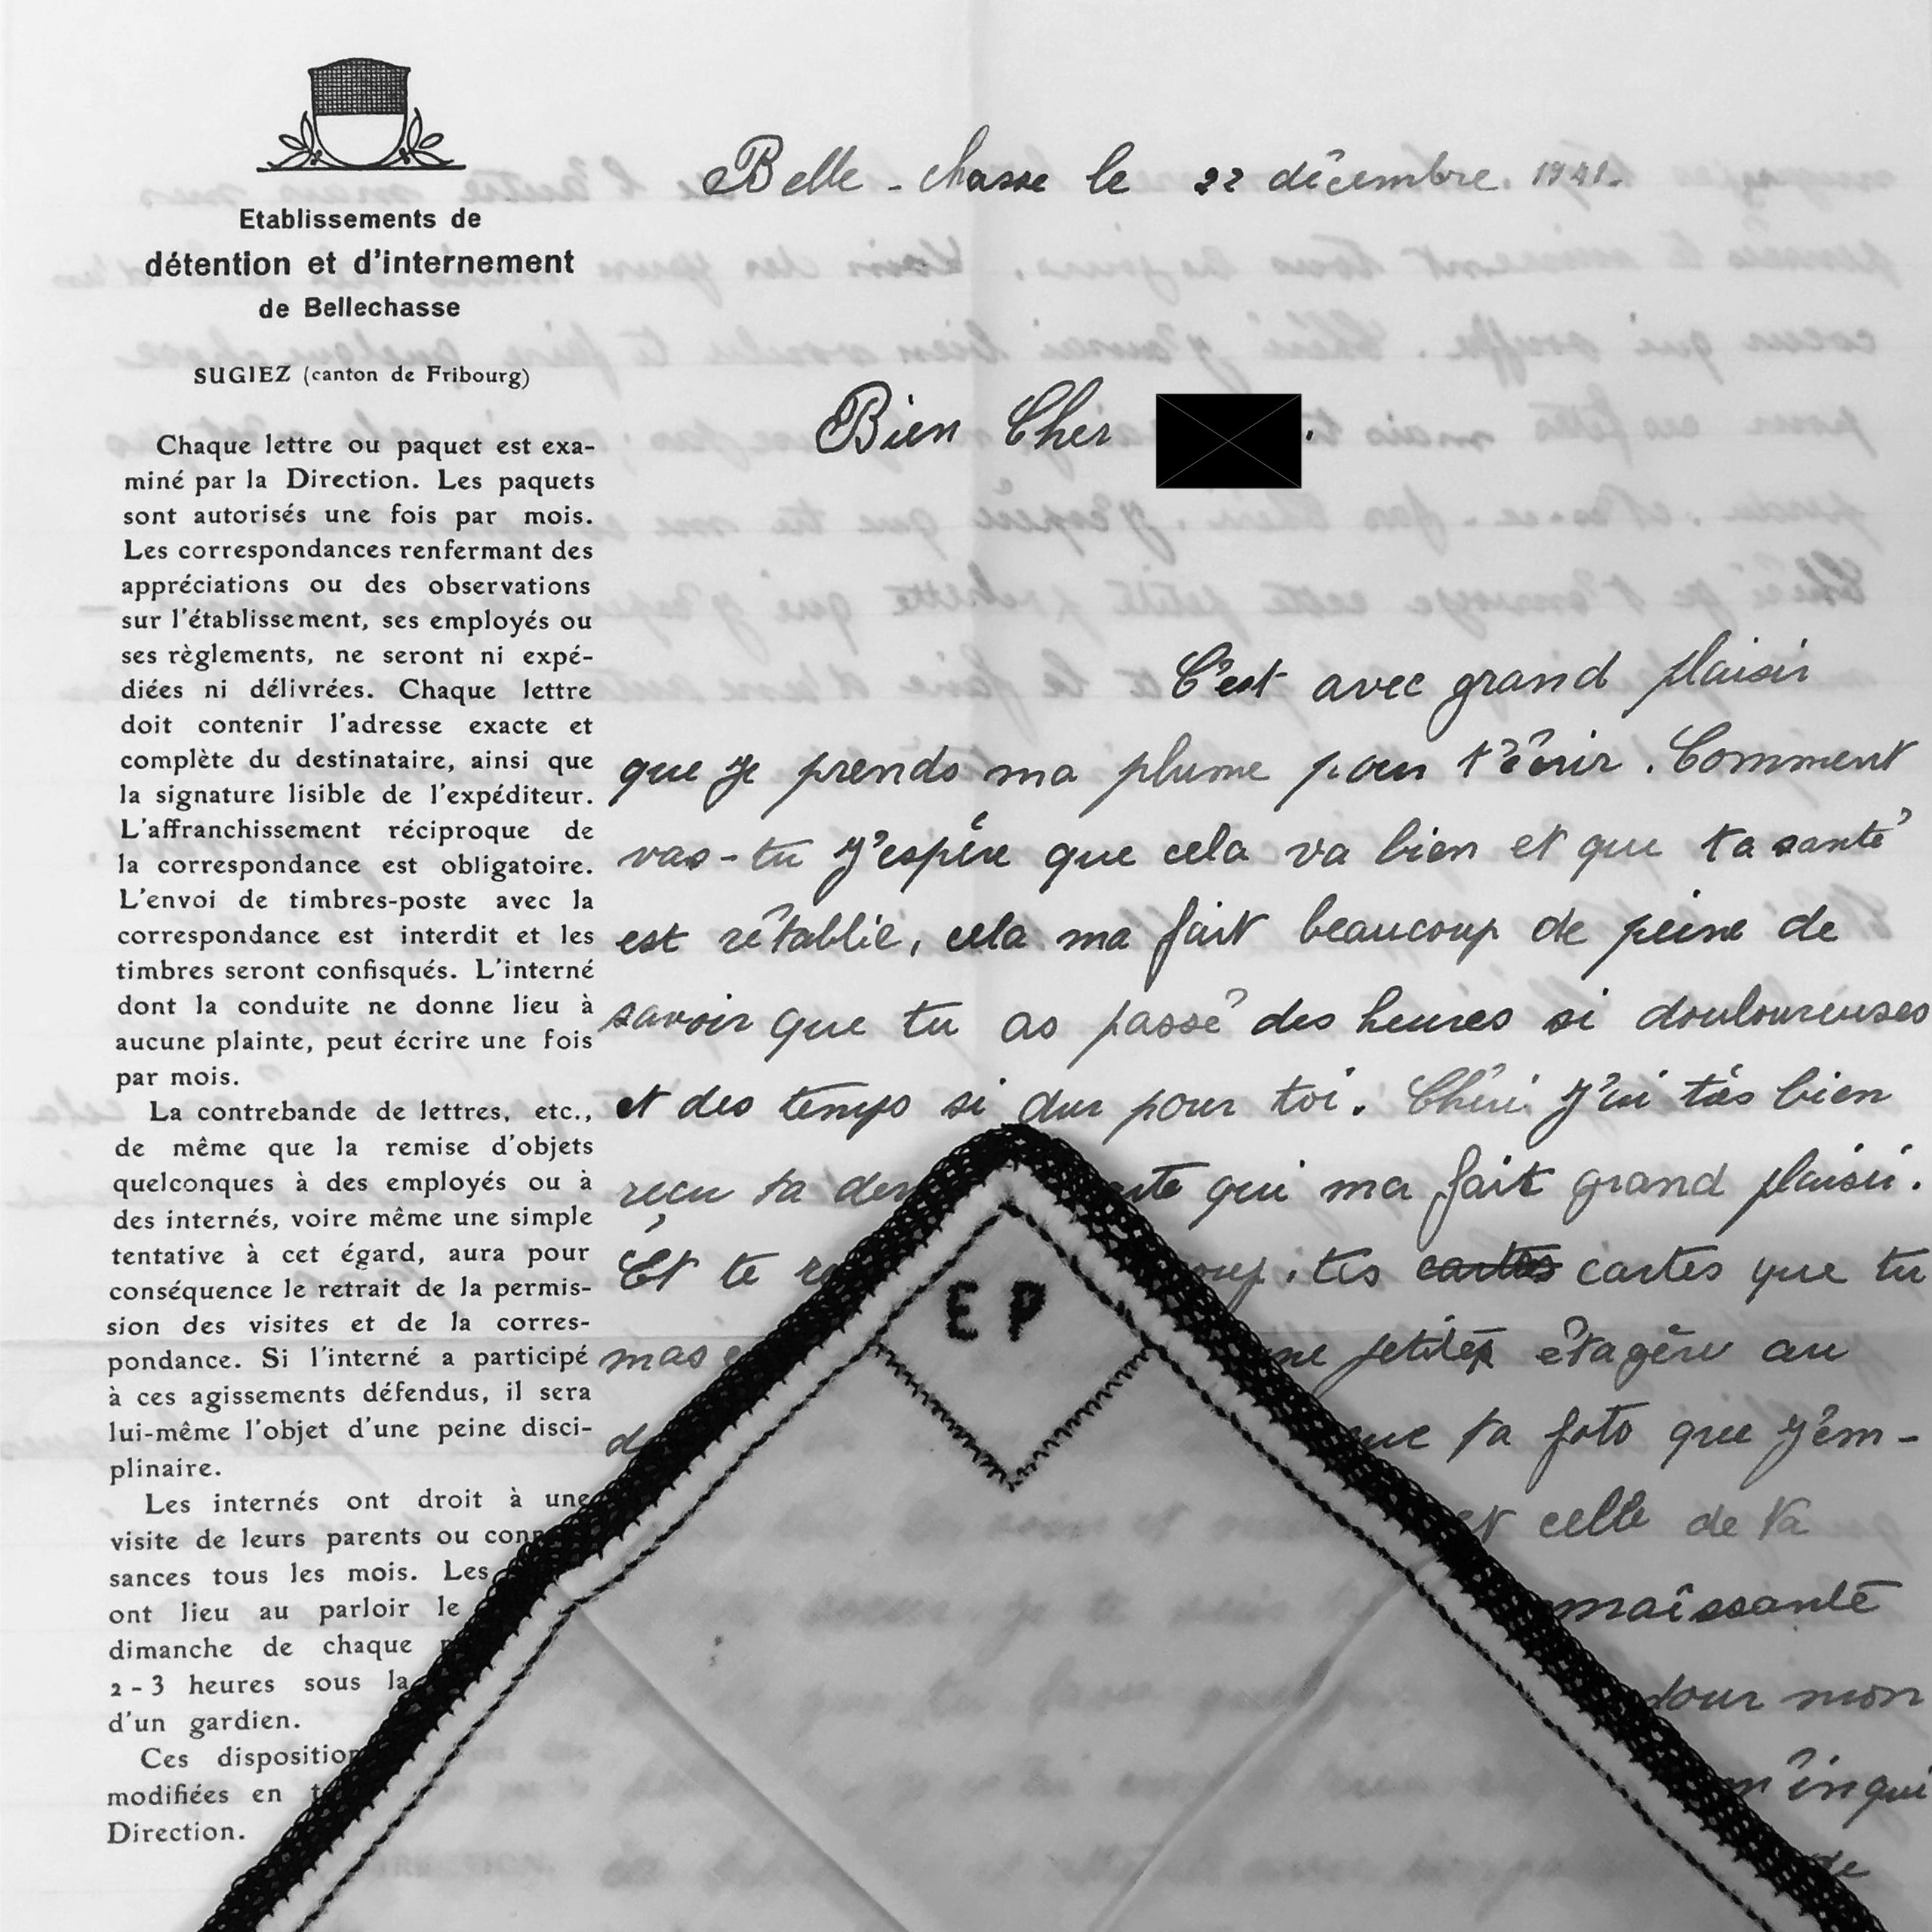 Etablissements de
détention et d'internement
de Bellechasse
SUGIEZ (canton de Fribourg)
Chaque lettre ou paquet est exa-
miné par la Direction. Les paquets
sont autorisés une fois par mois.
Les correspondances renfermant des
appréciations ou des observations
sur l'établissement, ses employés ou
ses règlements, ne seront ni expé-
diées ni délivrées. Chaque lettre
doit contenir l'adresse exacte et
complète du destinataire, ainsi que
la signature lisible de l'expéditeur.
L'affranchissement réciproque de
la correspondance est obligatoire.
L'envoi de timbres-poste avec la
correspondance est interdit et les
timbres seront confisqués. L'interné
dont la conduite ne donne lieu à
aucune plainte, peut écrire une fois
par mois.
La contrebande de lettres, etc.,
de même que la remise d'objets
quelconques à des employés ou à
des internés, voire même une simple
tentative à cet égard, aura pour
conséquence le retrait de la permis-
sion des visites et de la corres-
pondance. Si l'interné a participé
à ces agissements défendus, il sera
lui-même l'objet d'une peine disci-
plinaire.
Les internés ont droit à une
visite de leurs parents ou conn
sances tous les mois. Les
ont lieu au parloir le
dimanche de chaque
2-3 heures sous la
d'un gardien.
Ces disposition
modifiées en t
Direction.
Belle-chasse le 22 décembre 1941.
Bien Cher
C'est avec grand plaisir
que je prends ma plume pour t'écrir. Comment
vas-tu j'espére que cela va bien et que ta santé
est rétablie, cela ma fait beaucoup de peine de
savoir que tu as passé des heures si douloureuses
et des temps si dur pour toi. Chéri j'ai tés bien
reçu ta der rte qui ma fait grand plaisir.
Et te re oup. tes cartes cartes que tu
mas ne petites étagére au
que ta foto que j'em-
et celle de ta
naissante
tour mon
m'inqui
de
E P